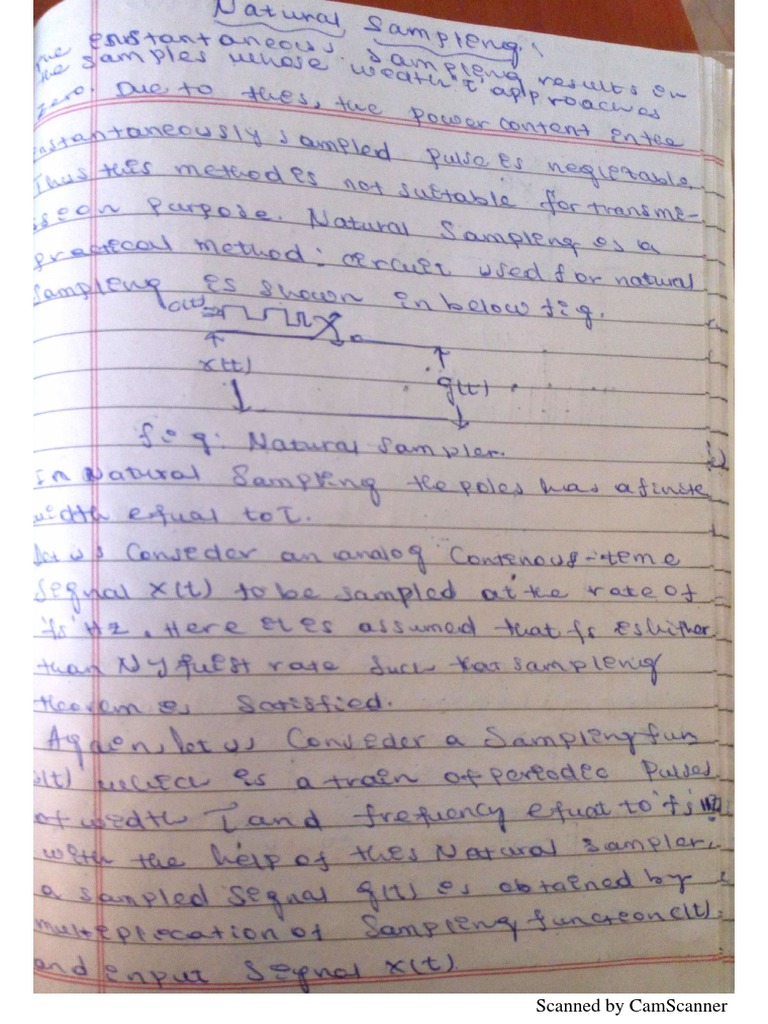 Natural Sampling
The instantaneous sampling results in
the samples whose width τ approaches
zero. Due to this, the power content in the
instantaneously sampled pulse is neglegable.
Thus this method is not suitable for transmi-
ssion purpose. Natural Sampling is a
practical method. circuit used for natural
sampling is shown in below fig.
c(t)
x(t)
g(t)
fig: Natural sampler.
In Natural Sampling the poles has a finite
width equal to τ.
Let us Consider an analog Continous-time
Signal x(t) to be sampled at the rate of
'fs' Hz. Here it is assumed that fs is hither
than Nyquist rate such that sampling
theorem is Satisfied.
Again, let us Consider a Sampling fun
c(t) which is a train of periodic Pulses
of width τ and frequency equal to 'fs' Hz
with the help of this Natural sampler,
a sampled signal g(t) is obtained by
multiplication of Sampling function c(t)
and input Signal x(t).
Scanned by CamScanner